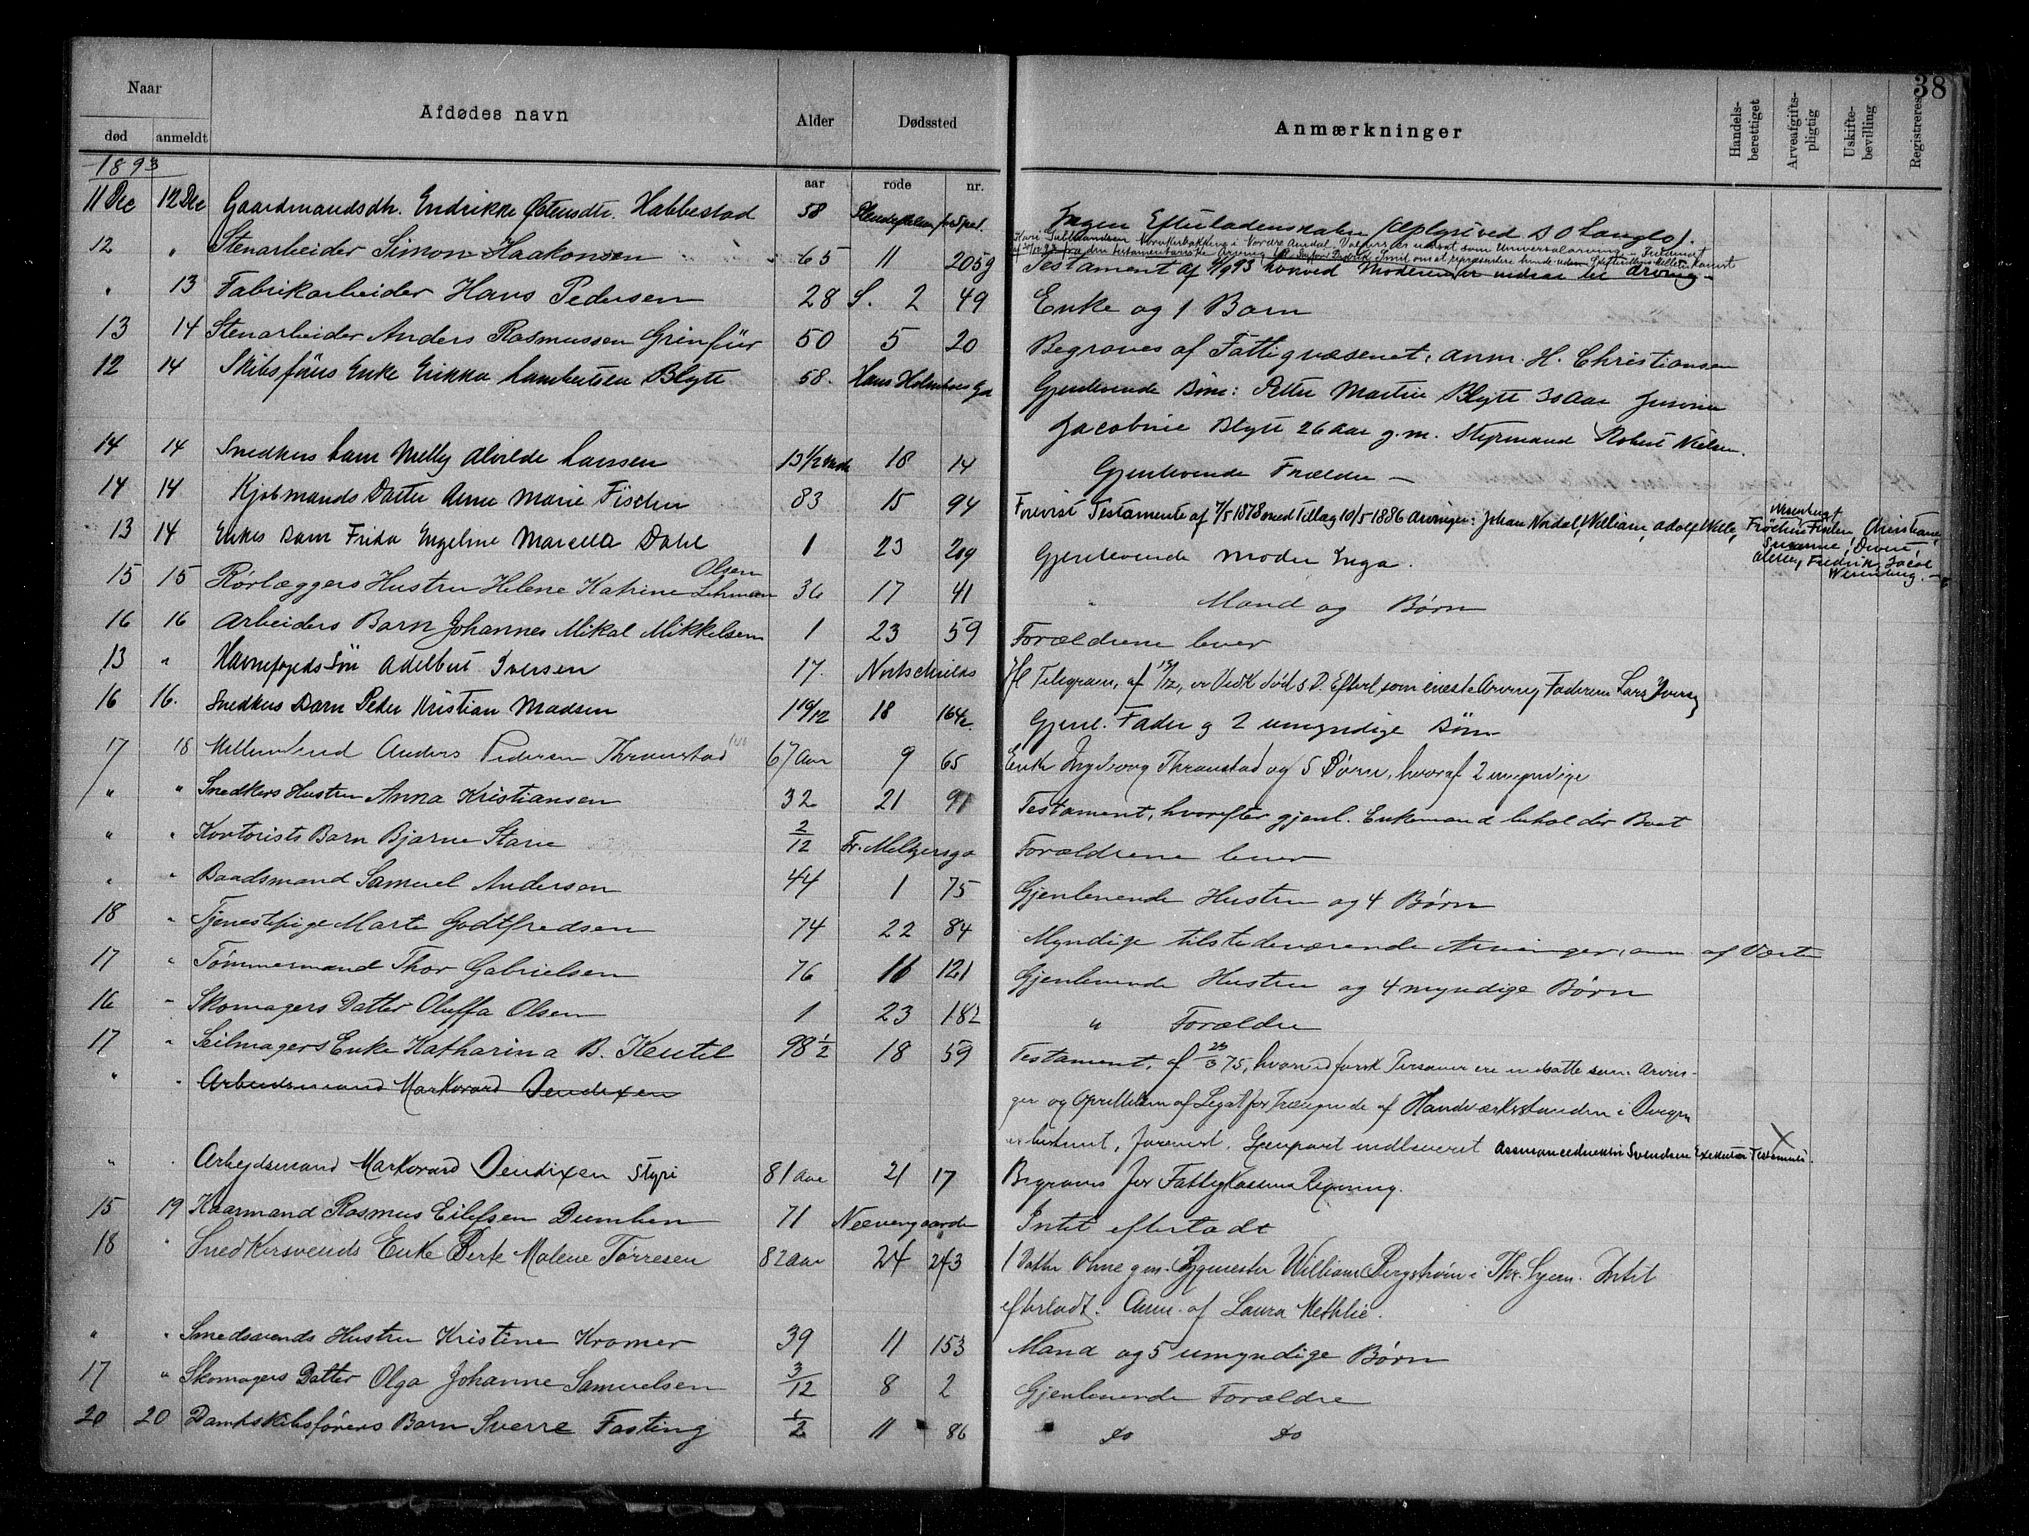 38
Naar
Afdødes navn
Alder
Dødssted
Anmærkninger
Handels-berettiget
Arveafgifts-pligtig
Uskifte-bevilling
Registreres
død
anmeldt
aar
rode
nr.
1893
11 Dec 12 Dec Gaardmandsdh. Endrikke Østensdtr. Habbestad 58 Ingen Efterladenskaber
12 " Stenarbeider Simon Haakonsen 65 11 205g Testament af 4/9 93 hvorved Moderen er indsat til Arving
" 13 Fabrikarbeider Hans Pedersen 28 S. 2 49 Enke og 1 Barn
13 14 Stenarbeider Anders Rasmussen Grinfür 50 5 20 Begraves af Fattigvæsenet, anm. H. Christiansen
12 14 Skibsførers Enke Erikka Lambertsen Blytt 58. Hans Holmboes gd Gjenlevende Børn: Petter Martin Blytt 30 Aar
Jacobine Blytt 26 aar g. m. Styrmand Robert Nielsen.
14 14 Snedkers barn Melly Alvilde Larssen 13 1/2 Mdr 18 14 Gjenlevende Forældre —
14 14 Kjøbmands Datter Anne Marie Fischer 83 15 94 Forevist Testamente af 7/5 1878 med Tillæg 10/5 1886 Arvinger: Johan Nordal, William, Adolf
13 14 Enkes Barn Frida Engeline Marcella Dahl 1 23 219 Gjenlevende Moder Inga.
15 15 Rørlæggers Hustru Helene Katrine Olsen Lehmann 36 17 41 " Mand og Børn
16 16 Arbeiders Barn Johannes Mikal Mikkelsen 1 23 59 Forældrene lever
13 " Havnefogeds Søn Adelbert Iversen 17. Telegram, af 15/12, Faderen Lars Iversen
16 16. Snedkers Barn Peder Kristian Madsen 1 10/12 18 164c Gjenl. Fader og 2 umyndige Børn
17 18 Anders Pedersen Thronstad 67 Aar 9 65 Enke Ingeborg Thronstad og 5 Børn, hvoraf 2 umyndige
" " Snedkers Hustru Anna Kristiansen 32 21 91 Testament, hvorefter gjenl. Enkemand beholder Boet
" " Kontorists Barn Bjarne Starie 2/12 Fr. Meltzersgd Forældrene lever
" " Baadsmand Samuel Andersen 44 1 75 Gjenlevende Hustru og 4 Børn
18 " Tjenestepige Marte Godtfredsen 74 22 84 Myndige tilstedeværende Arvinger, anm. af Værten
17 " Tømmermand Thor Gabrielsen 76 11 121 Gjenlevende Hustru og 4 myndige Børn
16 " Skomagers Datter Oluffa Olsen 1 23 182 " Forældre
17 " Seilmagers Enke Katharina B. Keutel 98 1/2 18 59 Testament, af 23/3 75, hvorved forsk Personer ere indsatte som Arvin-
" " Arbeidsmand Markvard Bendixen ger og Oprettelsen af Legat for Trængende af Haandværksstanden i Bergen
er bestemt, forevist. Gjenpart indleveret Assurancedirektør Svendsen Exekutor Testamenti.
" " Arbejdsmand Markvard Bendixen Styri 81 Aar 21 17 Begraves for Fattigkassens Regning.
15 19 Kaarmand Rasmus Eilefsen Dumben 71 Nævengaarden Intet efterladt
18 " Snedkersvends Enke Berte Malene Tørresen 82 aar 24 243 1 Datter gm. Bygmester William Bergstrøm i Thr.hjem. Intet
efterladt. Anm. af Laura Methlie.
" " Smedsvends Hustru Kristine Kromer 39 11 153 Mand og 5 umyndige Børn
17 " Skomagers Datter Olga Johanne Samuelsen 3/12 8 2 Gjenlevende Forældre
20 20 Dampskibsførers Barn Sverre Fasting 1/2 11 86 do do